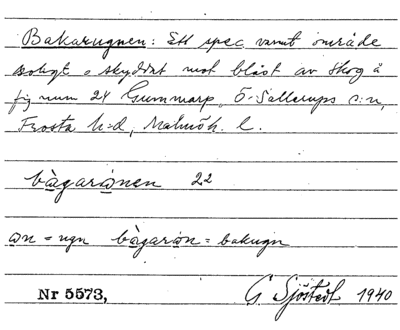 Bakarugnen: Ett spec varmt område
soligt o skyddat mot blåst av skog å
fig num 24 Gummarp, Ö. Sallerups s:n,
Frosta h:d, Malmöh. l.
bàgarọnen 22
ọn = ugn bàgarọn = bakugn
Nr 5573, G Sjöstedt 1940